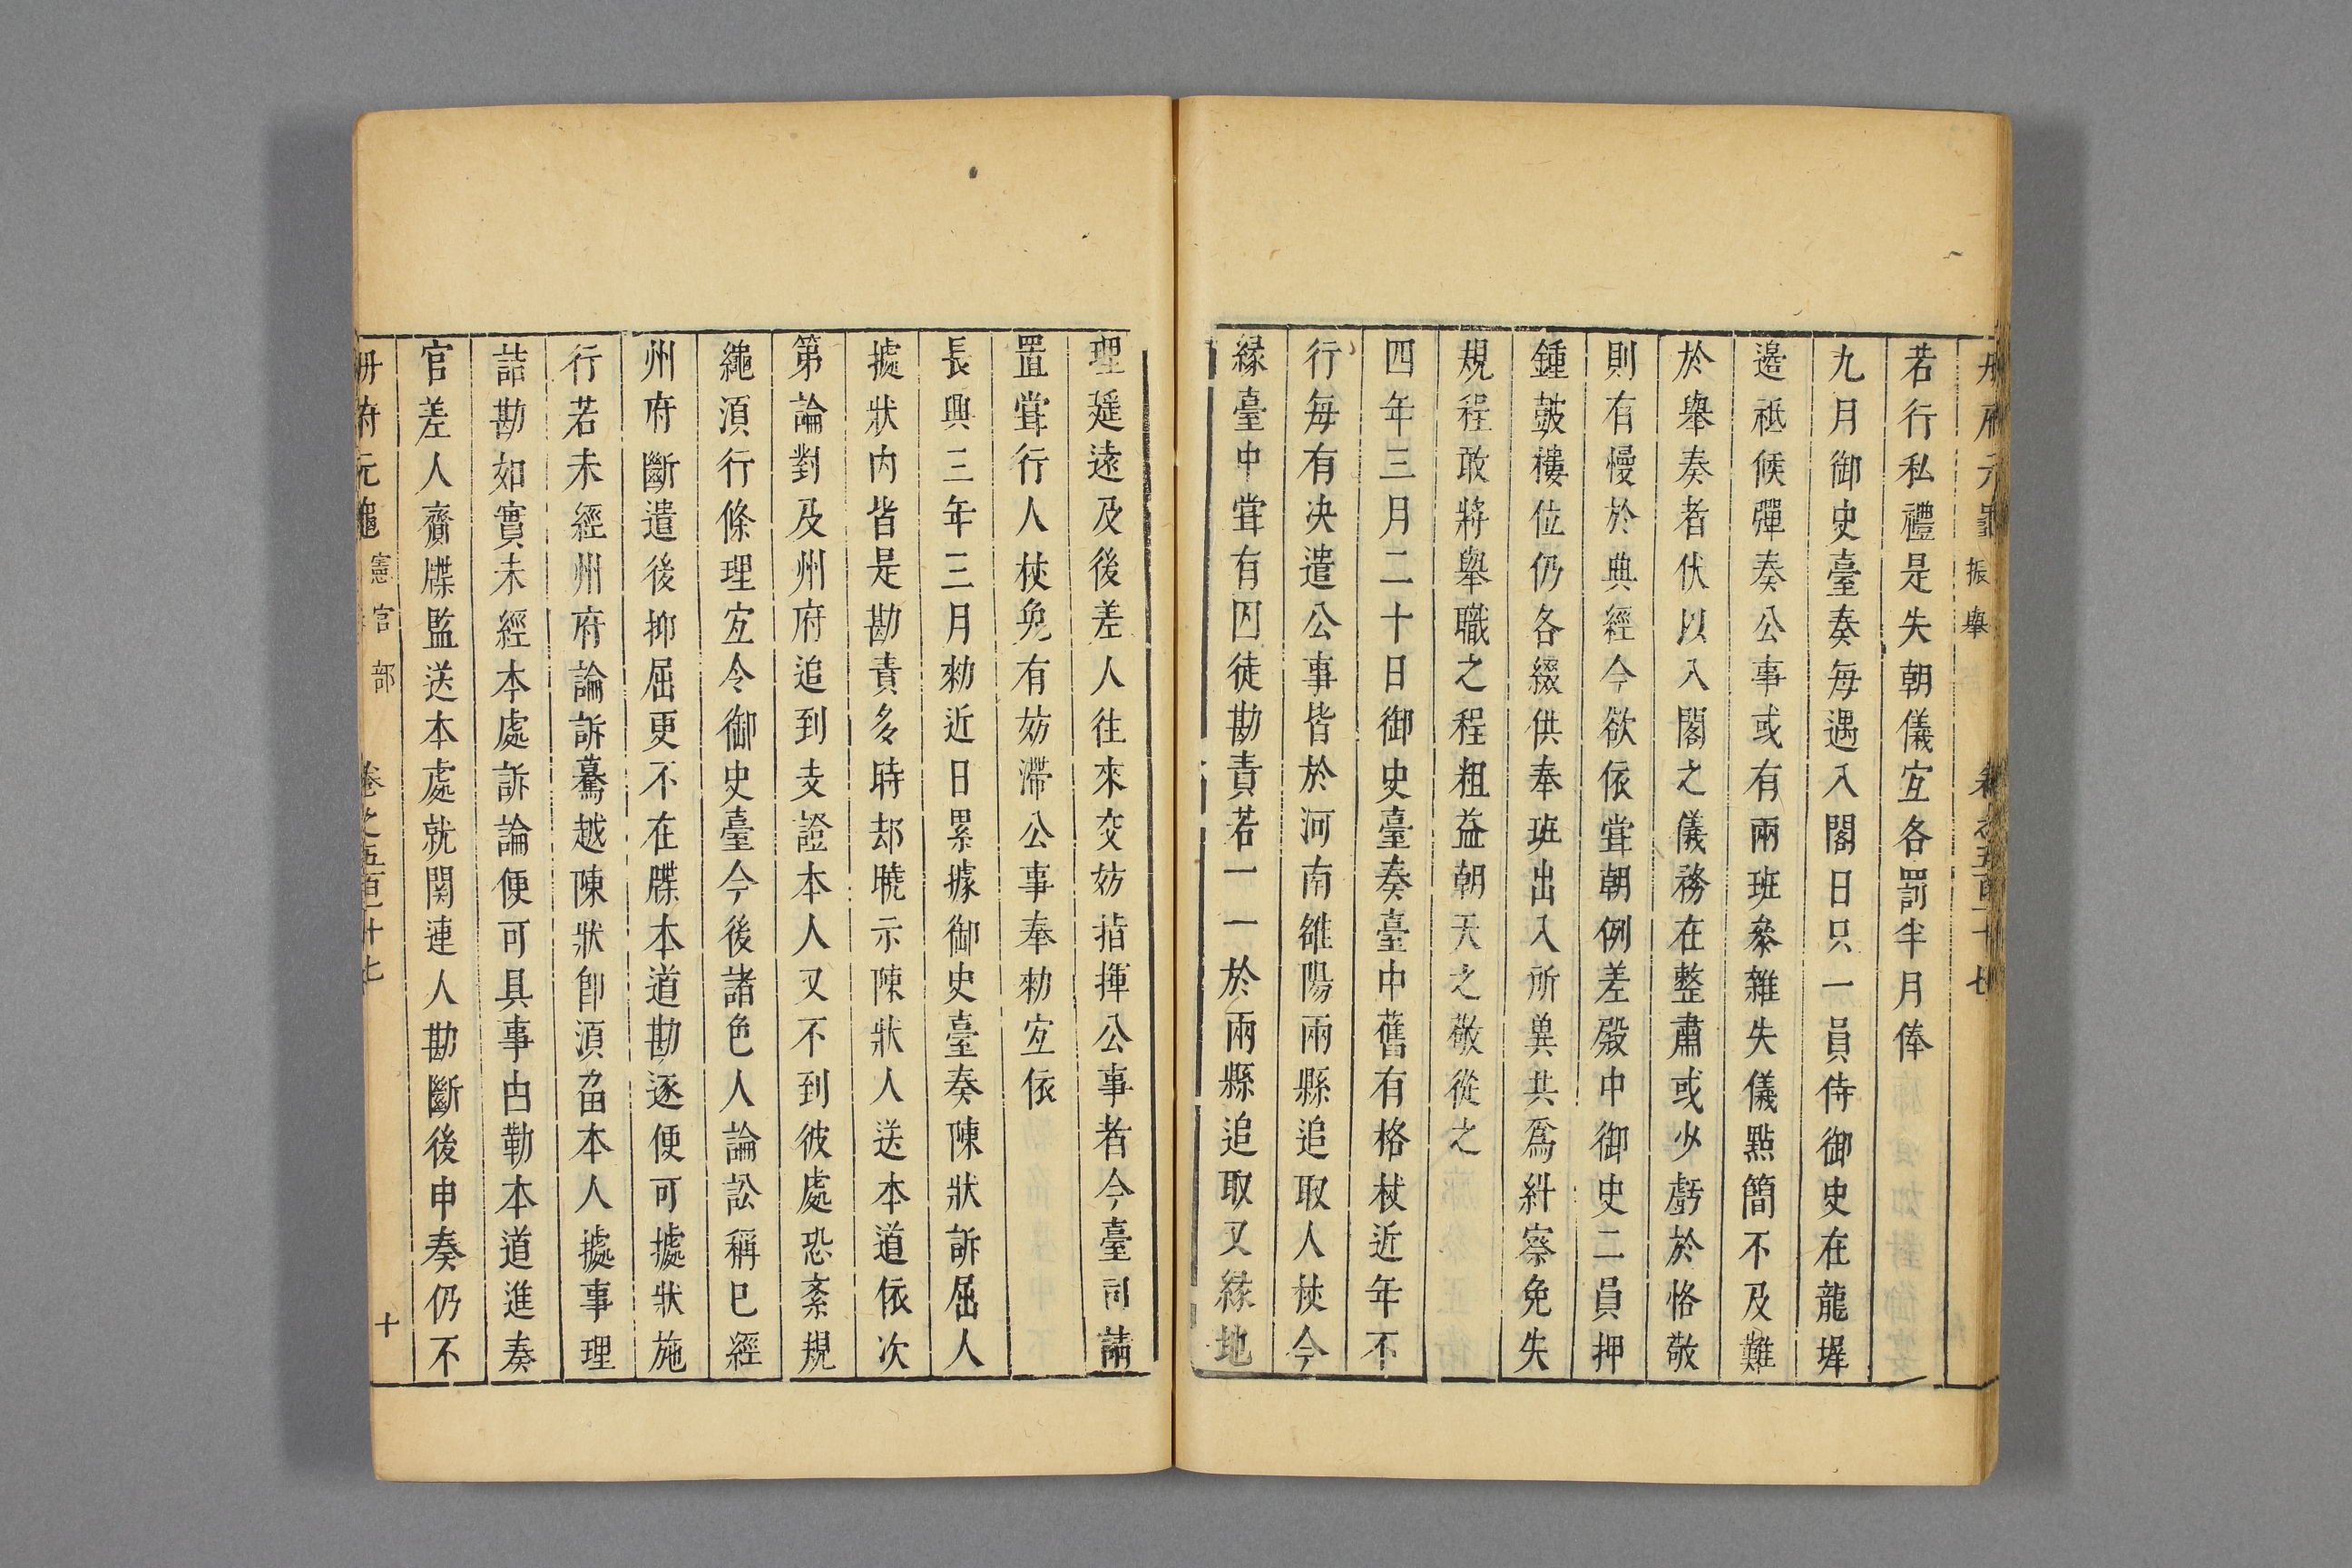 册府元龜 振舉 卷之五百十七
若行私禮是失朝儀宜各罰半月俸
九月御史臺奏每遇入閣日只一員侍御史在龍墀
邊祗候彈奏公事或有兩班叅雜失儀點簡不及難
於舉奏者伏以入閣之儀務在整肅或少虧於恪敬
則有慢於典經今欲依甞朝例差殿中御史二員押
鍾鼓樓位仍各綴供奉班出入所兾共爲糾察免失
規程敢將舉職之程粗益朝天之敬從之
四年三月二十日御史臺奏臺中舊有格杖近年不
行每有决遣公事皆於河南雒陽兩縣追取人杖今
縁臺中甞有囚徒勘責若一一於兩縣追取又縁地
理遥遠及後差人往來交妨指揮公事者今臺司請
置甞行人杖免有妨滯公事奉勑宜依
長興三年三月勑近日累據御史臺奏陳狀訴屈人
據狀内皆是勘責多時却曉示陳狀人送本道依次
第論對及州府追到支證本人又不到彼處恐紊規
繩湏行條理宜令御史臺今後諸色人論訟稱已經
州府斷遣後抑屈更不在牒本道勘逐便可據狀施
行若未經州府論訴驀越陳狀卽湏畱本人據事理
詰勘如實未經本處訴論便可具事由勒本道進奏
官差人賫牒監送本處就関連人勘斷後申奏仍不
册府元龜 憲官部 卷之五百十七 十